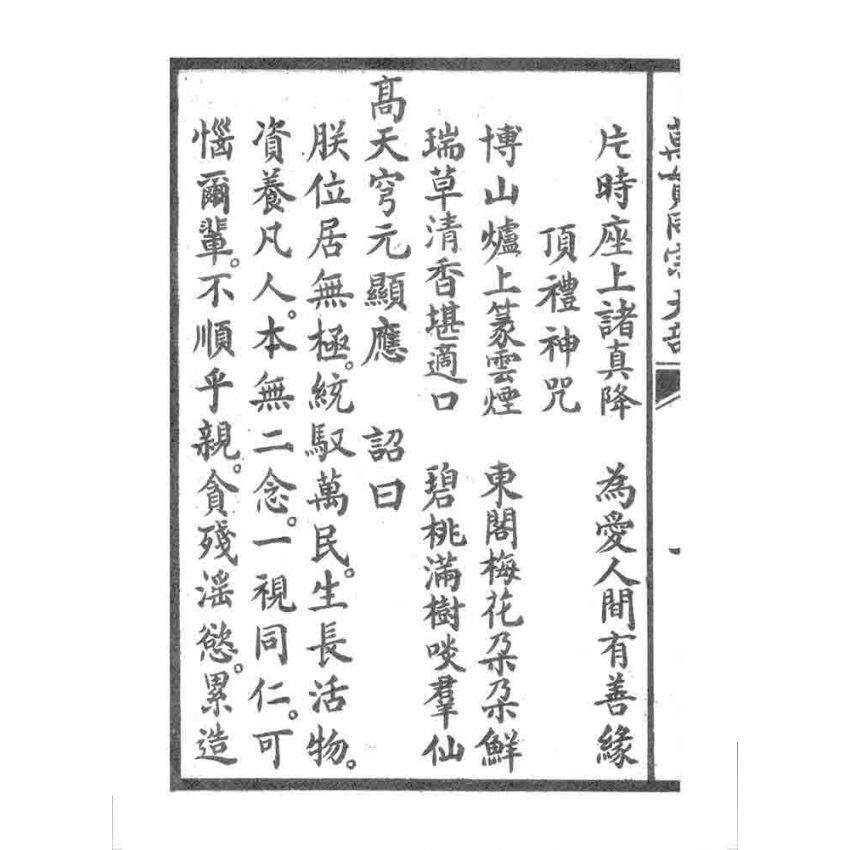 片時座上諸真降　為愛人間有善緣
頂禮神咒
博山爐上篆雲煙　東閣梅花朶朶鮮
瑞草清香堪適口　碧桃滿樹啖羣仙
高天穹元顯應　詔曰
朕位居無極。統馭萬民。生長活物。
資養凡人。本無二念。一視同仁。可
惱爾輩。不順乎親。貪殘淫慾。累造